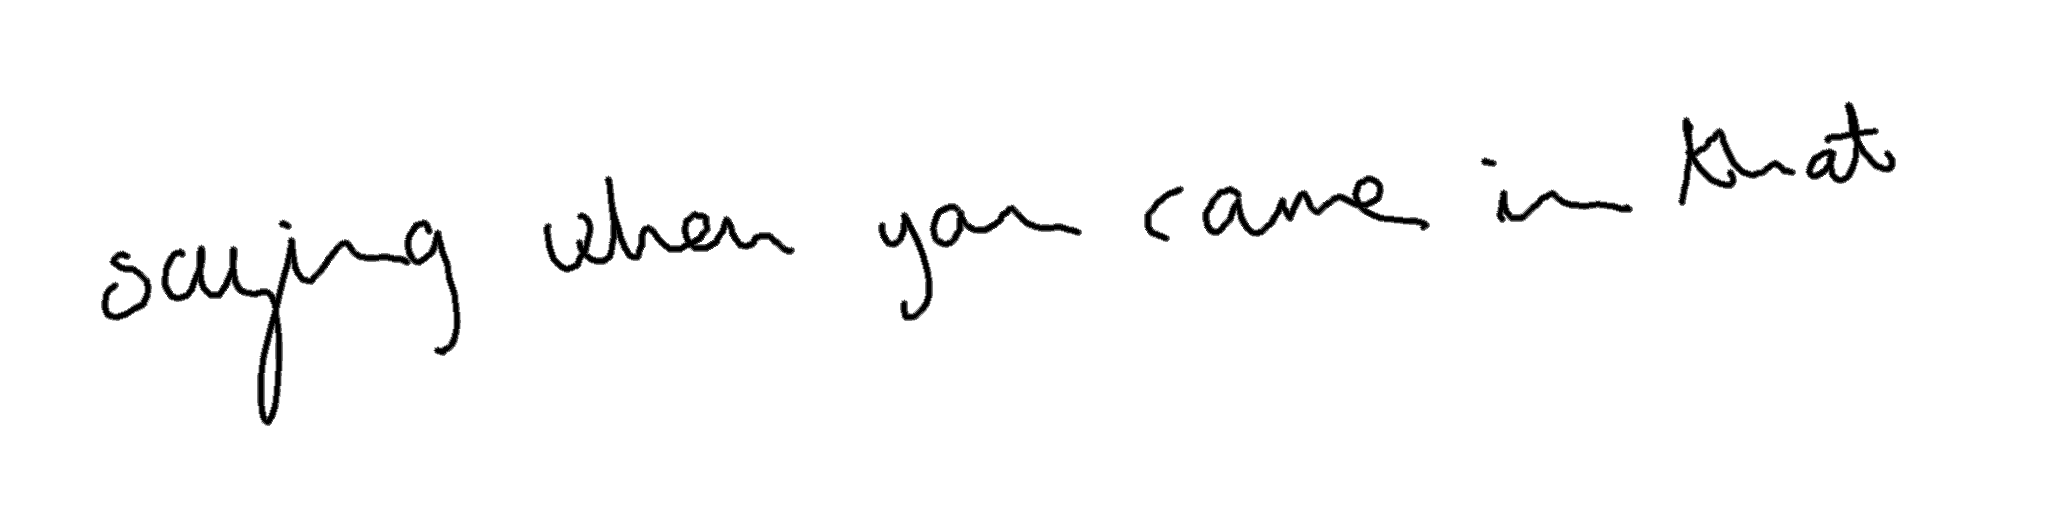 saying when you came in that